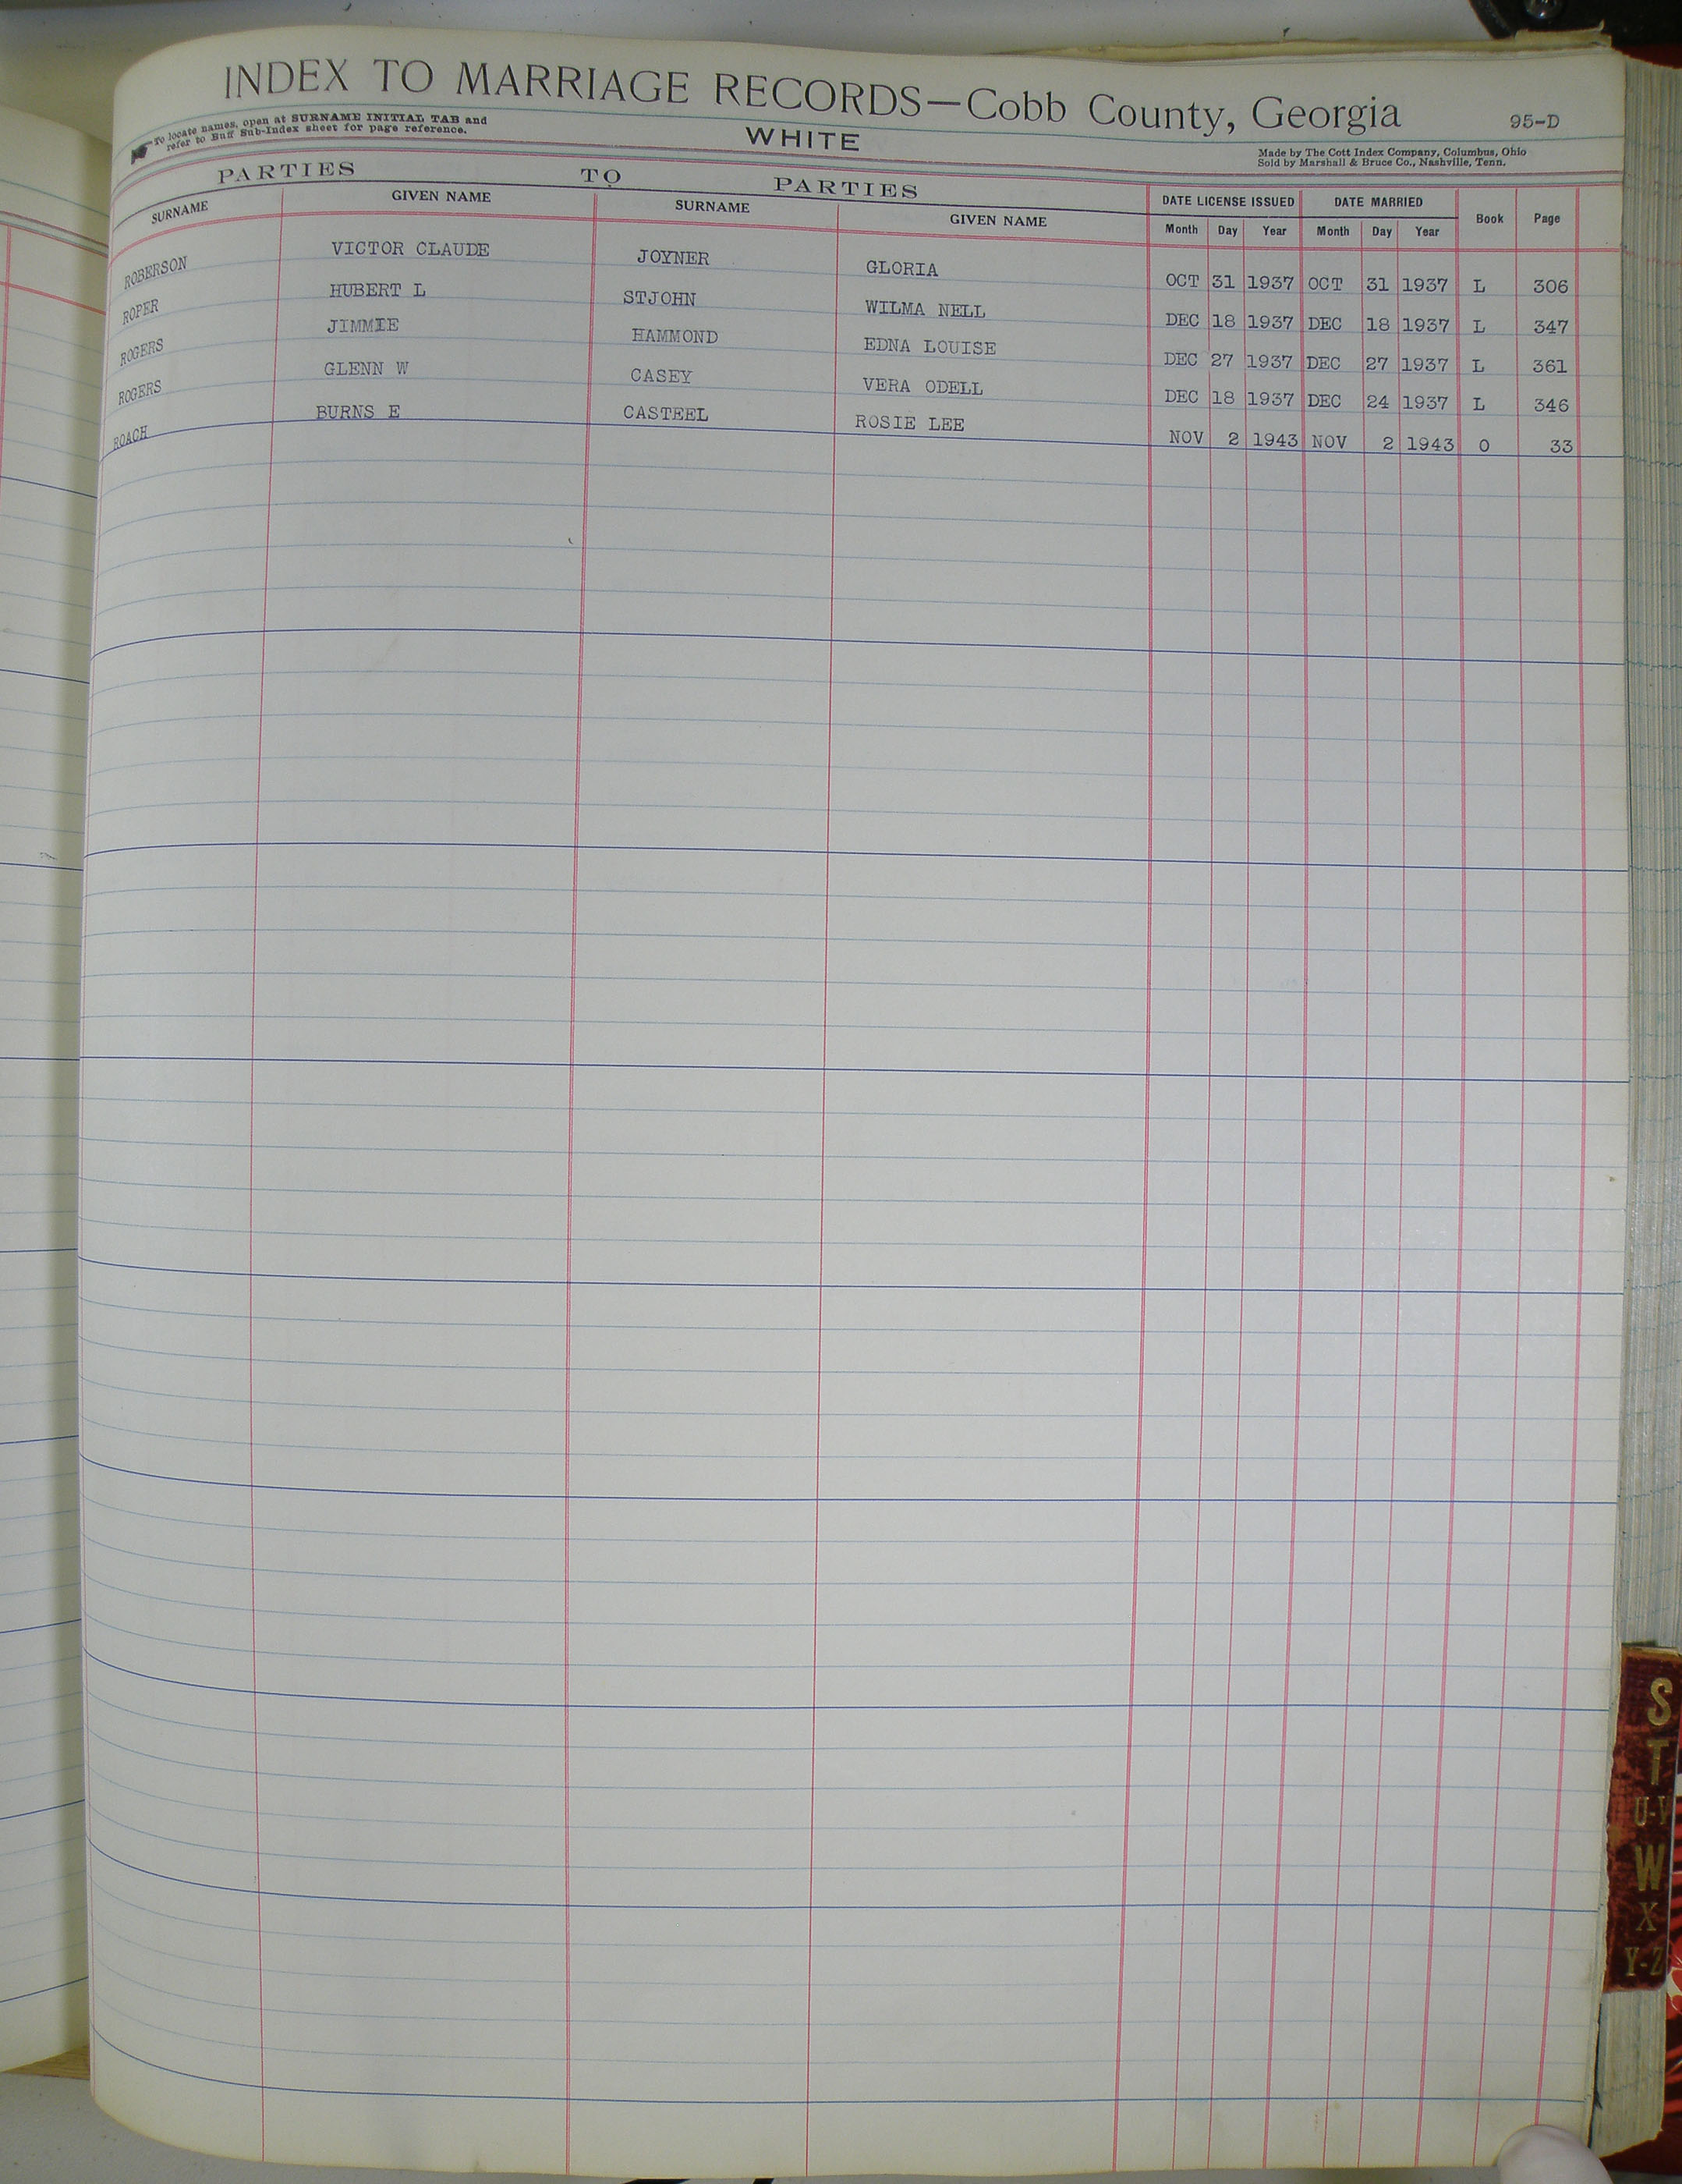 INDEX TO MARRIAGE RECORDS—Cobb County, Georgia
95-D
To locate names, open at SURNAME INITIAL TAB and
refer to Buff Sub-Index sheet for page reference.
WHITE
Made by The Cott Index Company, Columbus, Ohio
Sold by Marshall & Bruce Co., Nashville, Tenn.
PARTIES TO PARTIES
SURNAME GIVEN NAME SURNAME GIVEN NAME DATE LICENSE ISSUED DATE MARRIED Book Page
Month Day Year Month Day Year
ROBERSON VICTOR CLAUDE JOYNER GLORIA OCT 31 1937 OCT 31 1937 L 306
ROPER HUBERT L STJOHN WILMA NELL DEC 18 1937 DEC 18 1937 L 347
ROGERS JIMMIE HAMMOND EDNA LOUISE DEC 27 1937 DEC 27 1937 L 361
ROGERS GLENN W CASEY VERA ODELL DEC 18 1937 DEC 24 1937 L 346
ROACH BURNS E CASTEEL ROSIE LEE NOV 2 1943 NOV 2 1943 O 33
S
T
U-V
W
X
Y-Z